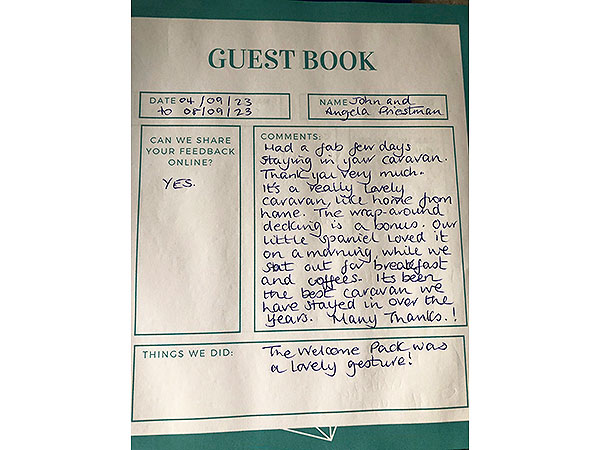 GUEST BOOK
DATE 04/09/23
to 08/09/23
NAME John and
Angela Priestman
CAN WE SHARE
YOUR FEEDBACK
ONLINE?
YES.
COMMENTS:
Had a fab few days
staying in your caravan.
Thank you very much.
It's a really lovely
caravan, like home from
home. The wrap-around
decking is a bonus. Our
little spaniel loved it
on a morning, while we
sat out for breakfast
and coffees. Its been
the best caravan we
have stayed in over the
years. Many Thanks.!
THINGS WE DID:
The Welcome Pack was
a lovely gesture!